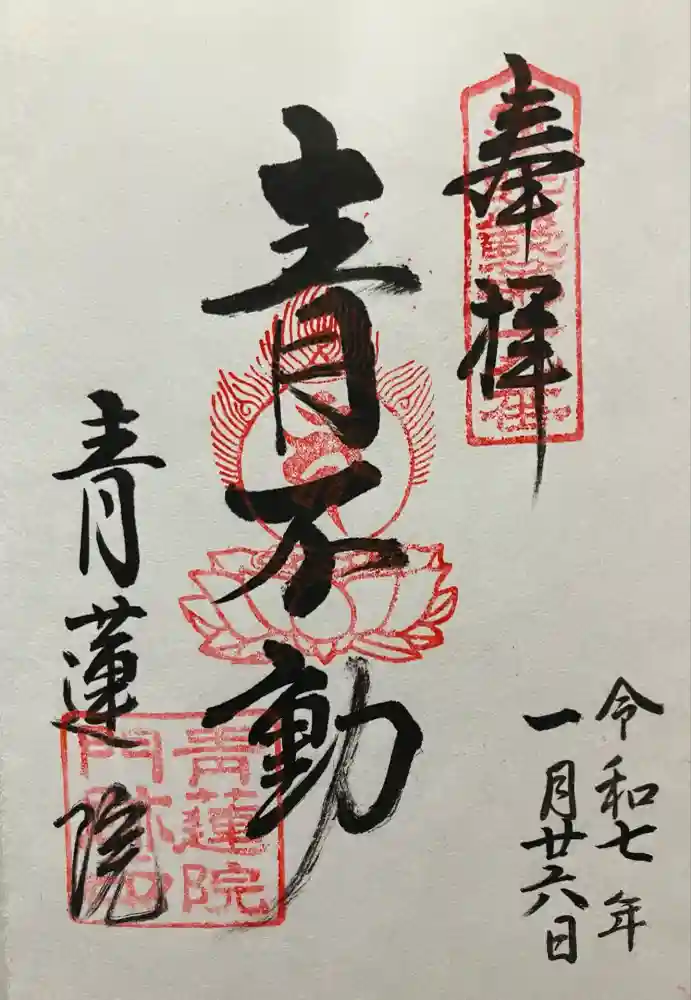 奉拝
青不動
青蓮院
令和七年
一月廿六日
青蓮院
門跡印